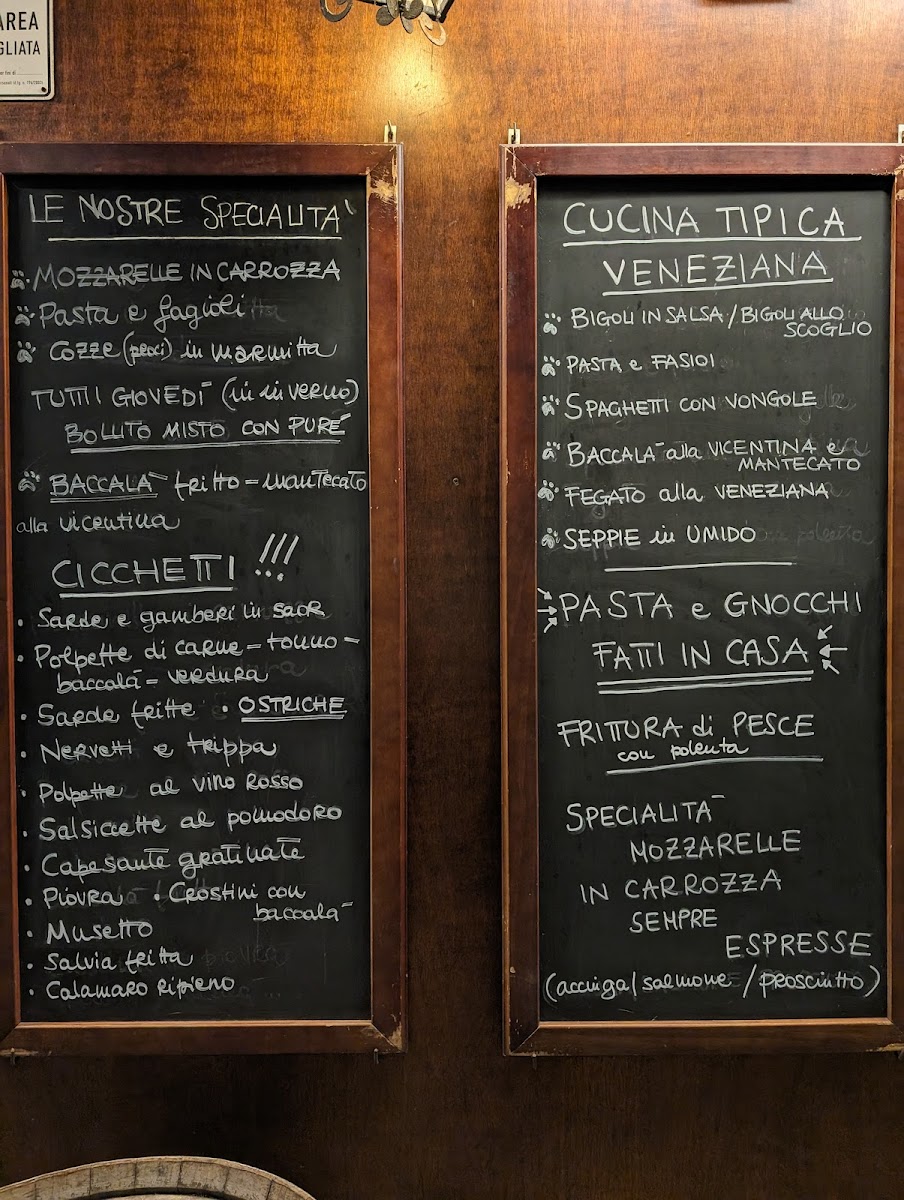 AREA
GLIATA
LE NOSTRE SPECIALITA'
MOZZARELLE IN CARROZZA
Pasta e fagioli
Cozze (peoci) in marmitta
TUTTI GIOVEDÍ (in inverno)
BOLLITO MISTO CON PURÉ
BACCALÀ fritto = mantecato
alla vicentina
CICCHETTI !!!
• Sarde e gamberi in saor
• Polpette di carne = tonno =
baccalà = verdura
• Sarde fritte • OSTRICHE
• Nervetti e trippa
• Polpette al vino rosso
• Salsiccette al pomodoro
• Capesante gratinate
• Piovra • Crostini con
baccalà
• Musetto
• Salvia fritta
• Calamaro ripieno
CUCINA TIPICA
VENEZIANA
BIGOLI IN SALSA / BIGOLI ALLO
SCOGLIO
PASTA e FASIOI
SPAGHETTI CON VONGOLE
BACCALÀ alla VICENTINA e
MANTECATO
FEGATO alla VENEZIANA
SEPPIE in UMIDO
PASTA e GNOCCHI
FATTI IN CASA
FRITTURA di PESCE
con polenta
SPECIALITÀ
MOZZARELLE
IN CARROZZA
SEMPRE
ESPRESSE
(acciuga / salmone / prosciutto)